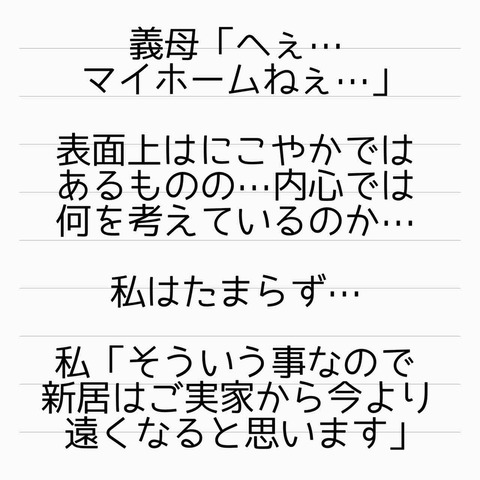 義母「へぇ…
マイホームねぇ…」
表面上はにこやかでは
あるものの…内心では
何を考えているのか…
私はたまらず…
私「そういう事なので
新居はご実家から今より
遠くなると思います」